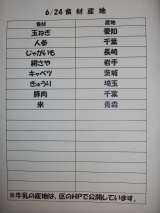 6/24食材産地
食材 産地
玉ねぎ 愛知
人参 千葉
じゃがいも 長崎
絹さや 岩手
キャベツ 茨城
きゅうり 埼玉
豚肉 千葉
米 青森
※牛乳の産地は、区のHPで公開しています。